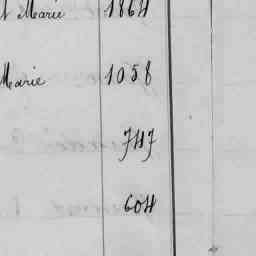 t Marie 1864
Marie 1058
747
604